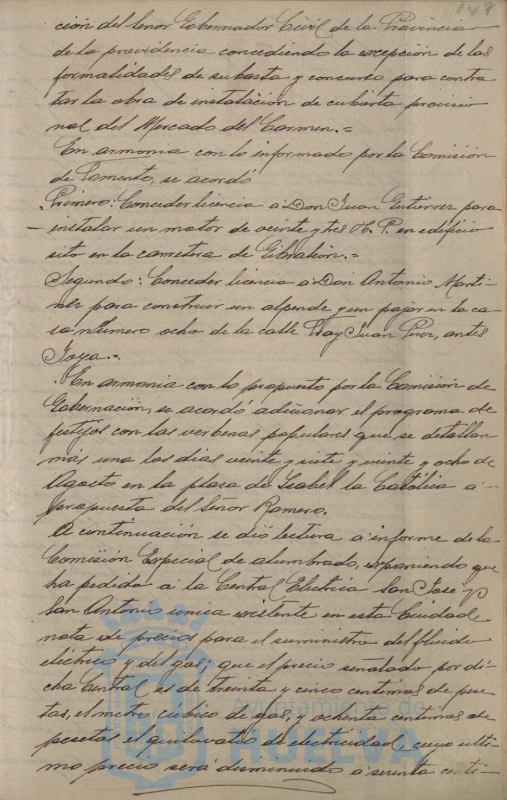 149
ción del Señor Gobernador Civil de la Provincia
de la providencia concediendo la excepción de las
formalidades de subasta y concurso para contra
tar la obra de instalación de cubierta provisio
nal del Mercado del Carmen.=
En armonia con lo informado por la Comisión
de Fomento, se acordó
Primero: Conceder licencia a Don Juan Gutierrez para
instalar un motor de veinte y tres H. P. en edificio
sito en la carretera de Gibraleon.=
Segundo: Conceder licencia a Don Antonio Marti-
nez para construir un alpende y un pajar en la ca-
sa número ocho de la calle Fray Juan Perez, antes
Joya.=
En armonia con lo propuesto por la Comisión de
Gobernación, se acordó adicionar el programa de
festejos con las verbenas populares que se detallan
más una los dias veinte y siete y veinte y ocho de
Agosto en la plaza de Isabel la Católica a
propuesta del Señor Romero.
A continuación se dió lectura a informe de la
Comisión Especial de alumbrado, exponiendo que
ha pedido a la Central Electrica San José y
San Antonio unica existente en esta Ciudad
nota de precios para el suministro del fluido
eléctrico y del gas; que el precio señalado por di-
cha Central es de treinta y cinco centimos de pese
tas, el metro cubico de gas, y ochenta centimos de
pesetas el quilovatio de electricidad, cuyo ulti-
mo precio será disminuido a sesenta centi-
Ayuntamiento de
HUELVA